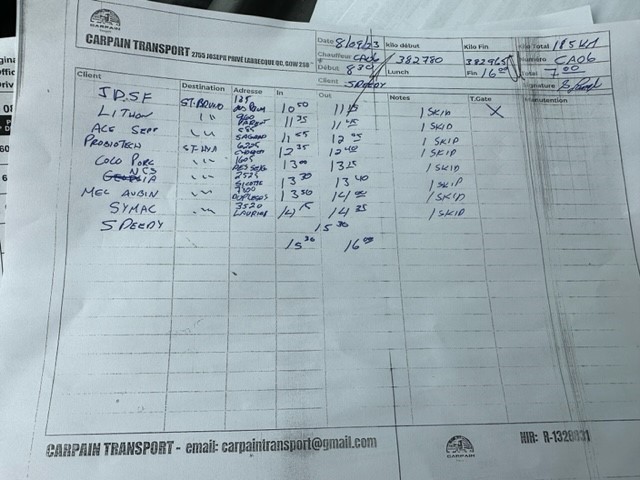 CARPAIN
CARPAIN TRANSPORT 2755 JOSEPH PRIVÉ LABBECQUE QC, G0W 2S0
Date 8/09/23 Kilo début 382780 Kilo Fin 382965 Kilo Total 185 KM
Chauffeur CA06 Numéro CA06
Début 8 30 Lunch Fin 16 00 Total 7 00
Client SPEEDY Signature
Client Destination Adresse In Out Notes T.Gate Manutention
JDSF ST-BRUNO 135 10 50 11 15 1 SKID X
LITHON " 11 35 11 45 1 SKID
ACE SEPT " 585 11 55 12 25 1 SKID
PROBIOTECH ST-HYA 6225 12 35 12 40 1 SKID
COCO PORC " 1605 13 00 13 15 1 SKID
NCS " 2525 SICOTTE 13 30 13 40 1 SKID
MEC AUBIN " 13 50 14 00 1 SKID
SYMAC " 3520 LAURIER 14 15 14 35 1 SKID
SPEEDY 15 30
15 30 16 00
CARPAIN TRANSPORT - email: carpaintransport@gmail.com
CARPAIN
NIR: R-1320